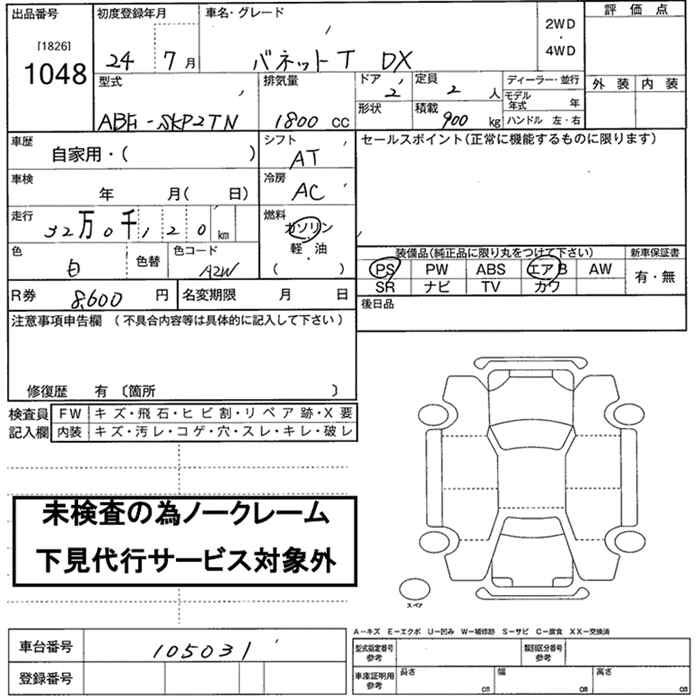 出品番号 初度登録年月 車名・グレード 評価点
[1826]
1048 24 7月 バネットT DX 2WD・4WD
外装 内装
型式 排気量 ドア 定員 ディーラー・並行
ABF-SKP2TN 1800 CC 2 2人 モデル年式 年
形状 積載 900 kg ハンドル 左・右
車歴 自家用・( ) シフト AT セールスポイント(正常に機能するものに限ります)
車検 年 月( 日) 冷房 AC
走行 32万0千120km 燃料 ガソリン
軽・油
( )
色 白 色替 色コード A2W
装備品(純正品に限り丸をつけて下さい) 新車保証書
PS PW ABS エアB AW 有・無
SR ナビ TV カワ
R券 8,600円 名変期限 月 日
後日品
注意事項申告欄 (不具合内容等は具体的に記入して下さい)
修復歴 有 〔箇所 〕
検査員 FW キズ・飛石・ヒビ割・リペア跡・X要
記入欄 内装 キズ・汚レ・コゲ・穴・スレ・キレ・破レ
未検査の為ノークレーム
下見代行サービス対象外
スペア
A-キズ E-エクボ U-凹み W-補修跡 S-サビ C-腐食 XX-交換済
車台番号 105031
型式指定番号 参考 類別区分番号 参考
登録番号
車庫証明用 参考 長さ cm 幅 cm 高さ cm